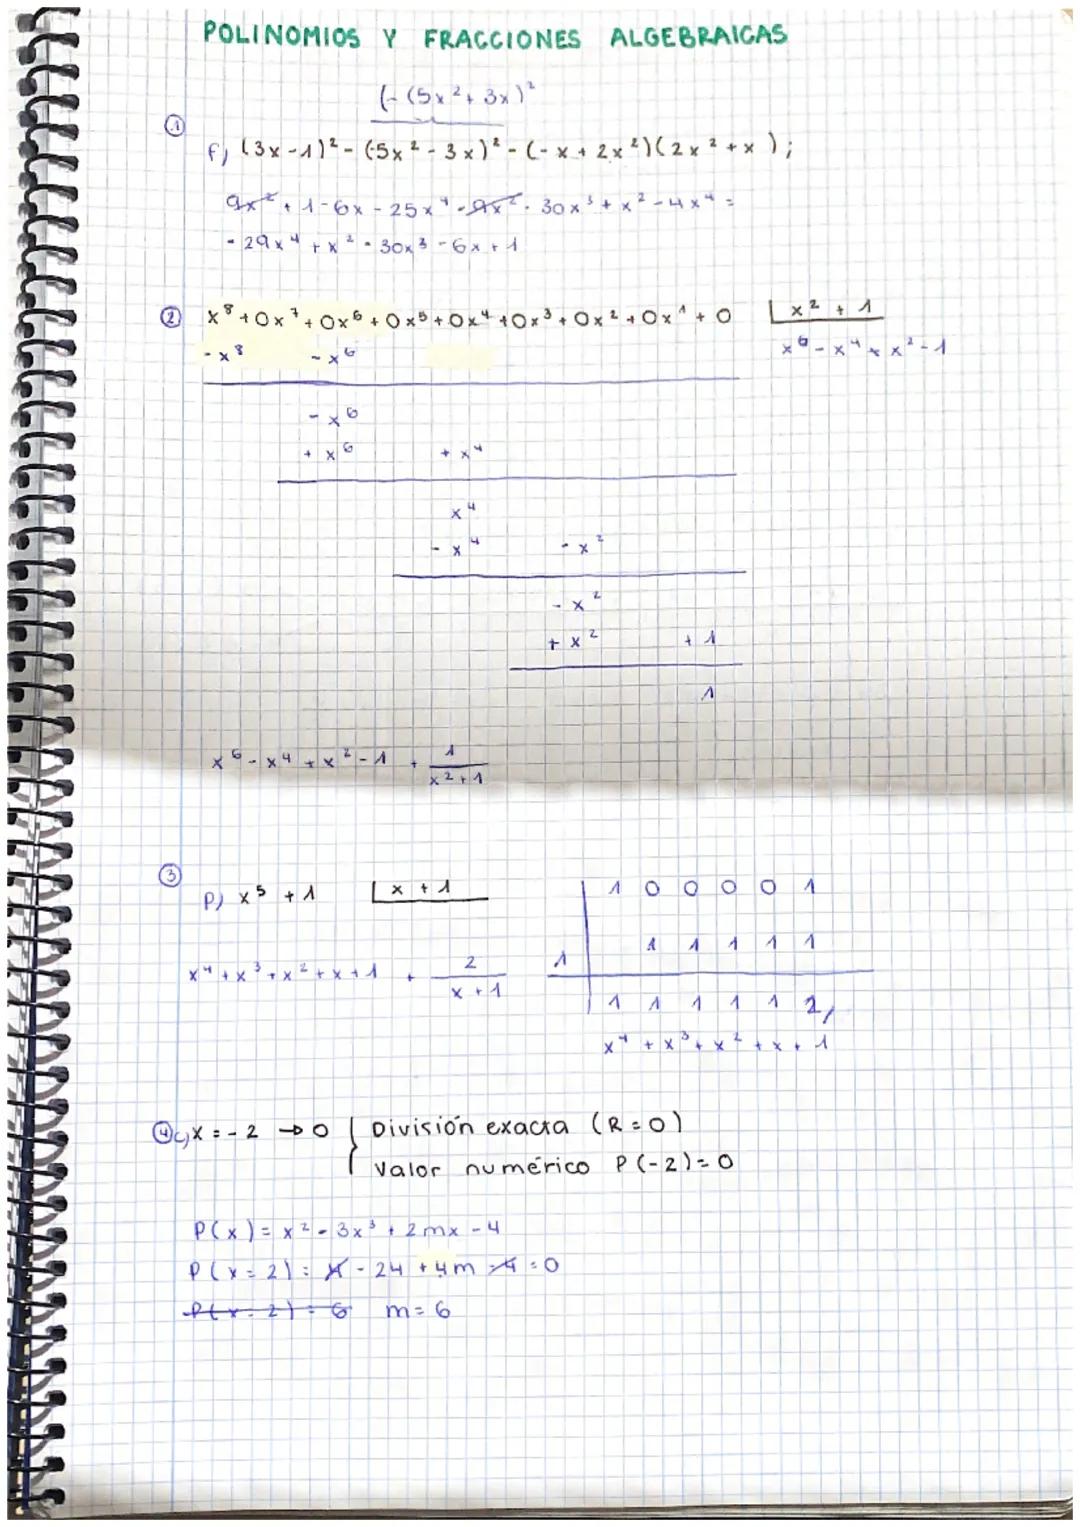 POLINOMIOS Y FRACCIONES ALGEBRAICAS
(-(5x²+3x)²
①
f) (3x-1)² - (-5x²-3x)² - (-x+2x²)(2x²+x);
9x² + 1-6x - 25x⁴ - 9x² - 30x³ + x² - 4x⁴ =
- 29x⁴ + x² - 30x³ - 6x + 1
② x⁸ + 0x⁷ + 0x⁶ + 0x⁵ + 0x⁴ + 0x³ + 0x² + 0x¹ + 0 | x² + 1
- x⁸ - x⁶ x⁶ - x⁴ + x² - 1
- x⁶
+ x⁶ + x⁴
x⁴
- x⁴ - x²
- x²
+ x² + 1
1
x⁶ - x⁴ + x² - 1 + 1/(x² + 1)
③
p) x⁵ + 1 | x + 1
1 0 0 0 0 1
1 1 1 1 1 1
x⁴ + x³ + x² + x + 1 + 2/(x + 1)
1 1 1 1 1 2
x⁴ + x³ + x² + x + 1
④ c) x = -2 → 0 { División exacta (R = 0)
Valor numérico P(-2) = 0
P(x) = x² - 3x³ + 2mx - 4
P(x=2) = 4 - 24 + 4m - 4 = 0
P(x=2) = 6 m = 6